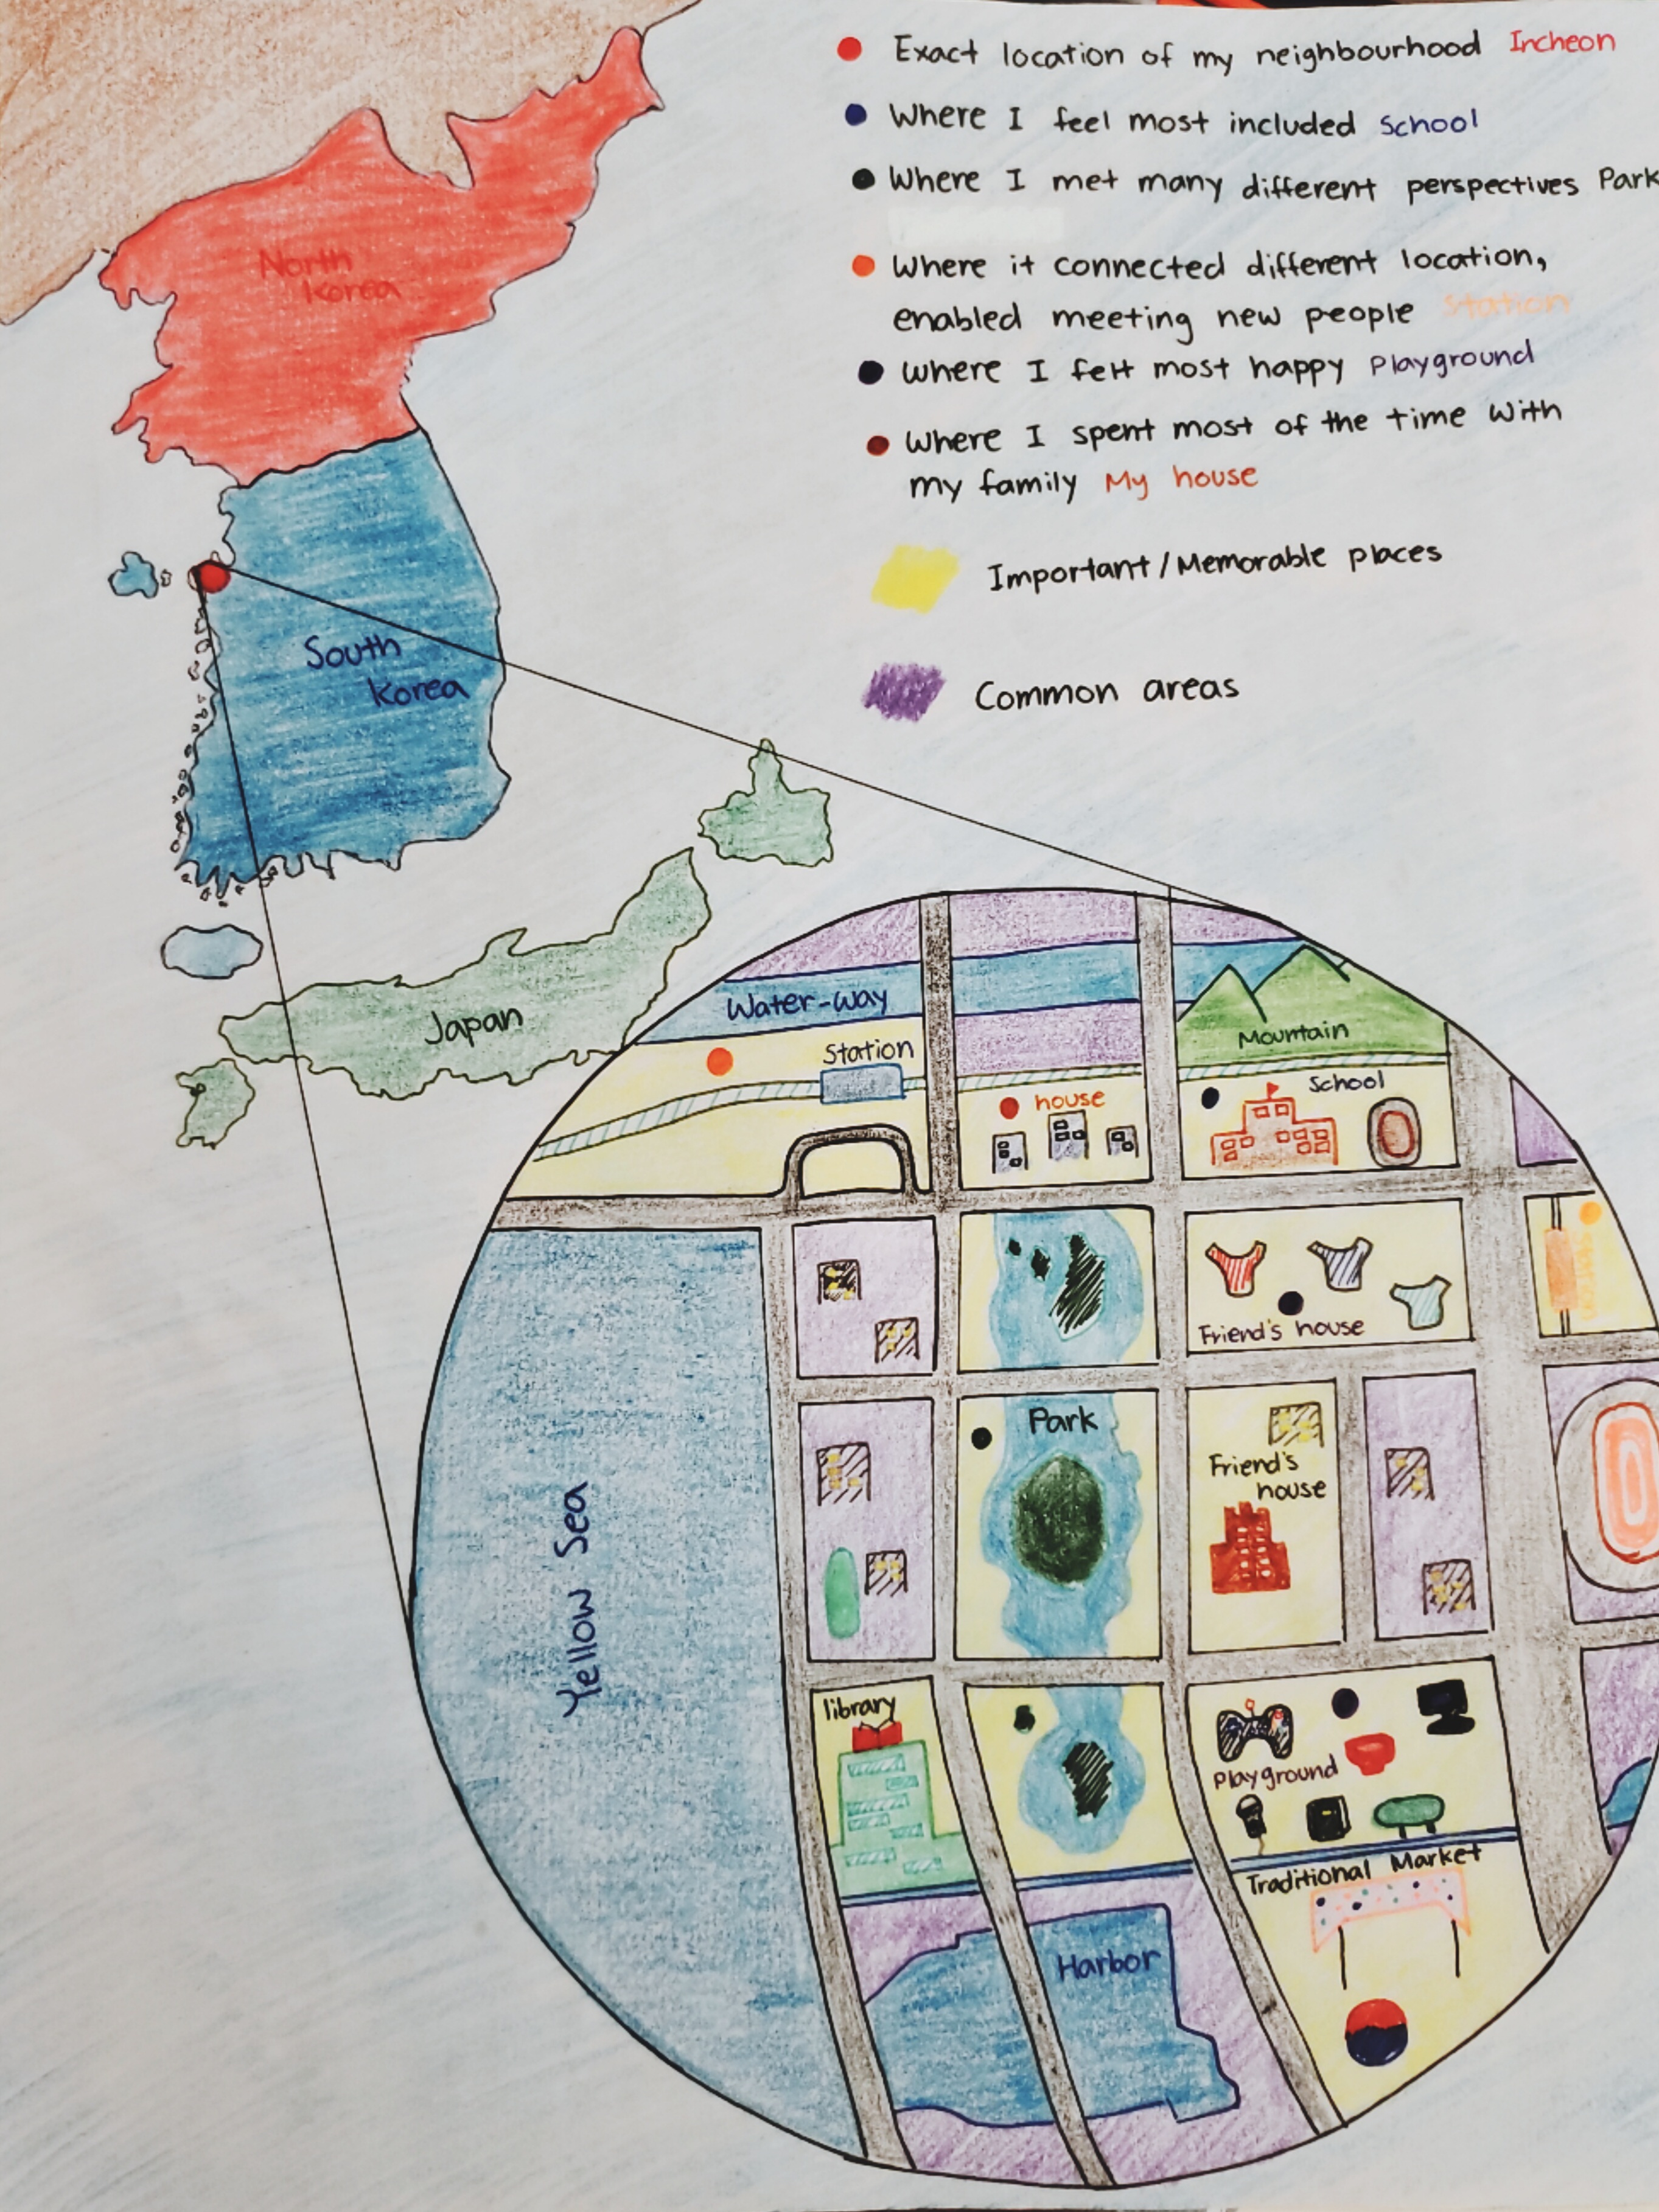 Exact location of my neighbourhood Incheon
Where I feel most included School
Where I met many different perspectives Park
Where it connected different location,
enabled meeting new people Station
Where I felt most happy Playground
Where I spent most of the time with
my family My house
Important/Memorable places
Common areas
North
Korea
South
Korea
Japan
Water-way
Mountain
Station
house
School
Station
Friend's house
Park
Friend's
house
Yellow Sea
library
Playground
Traditional Market
Harbor